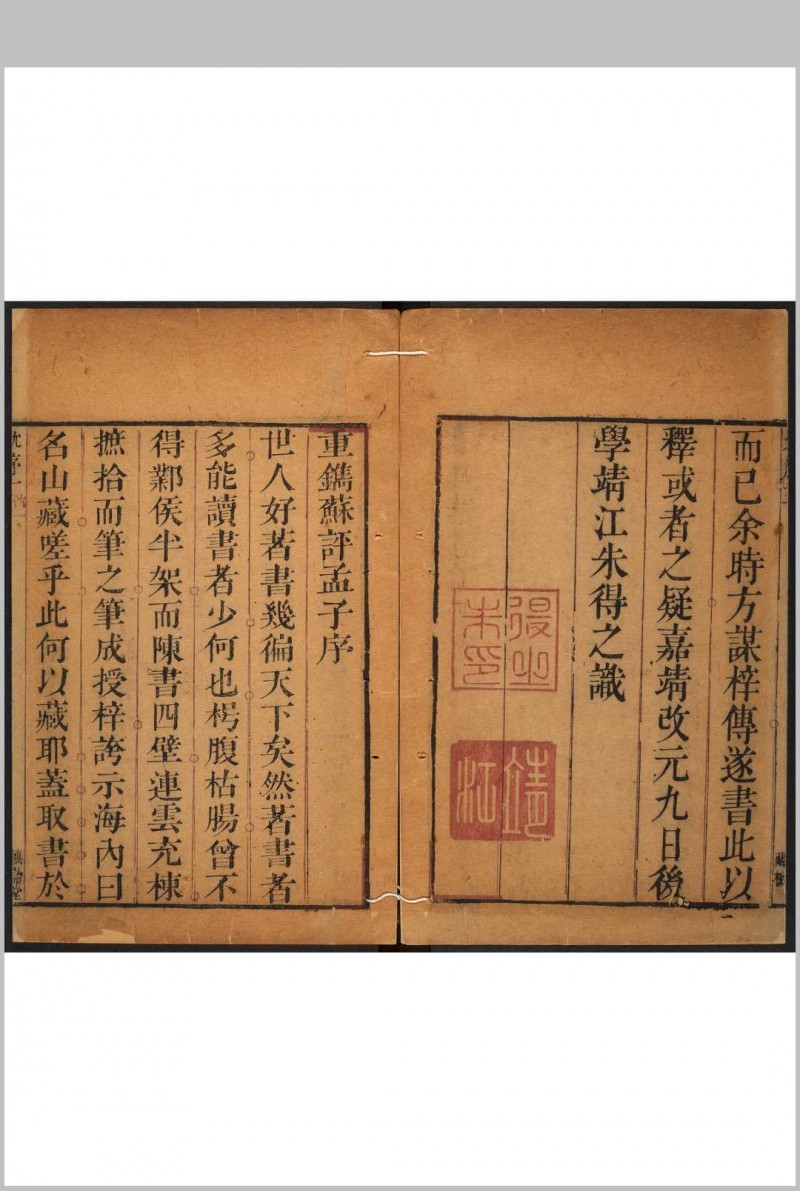 而已余時方謀梓傳遂書此以
釋或者之疑嘉靖改元九日後
學靖江朱得之識
靖江
重鐫蘇評孟子序
世人好著書幾徧天下矣然著書者
多能讀書者少何也枵腹枯腸曾不
得鄴侯半架而陳書四壁連雲充棟
摭拾而筆之筆成授梓誇示海內曰
名山藏嗟乎此何以藏耶蓋取書於